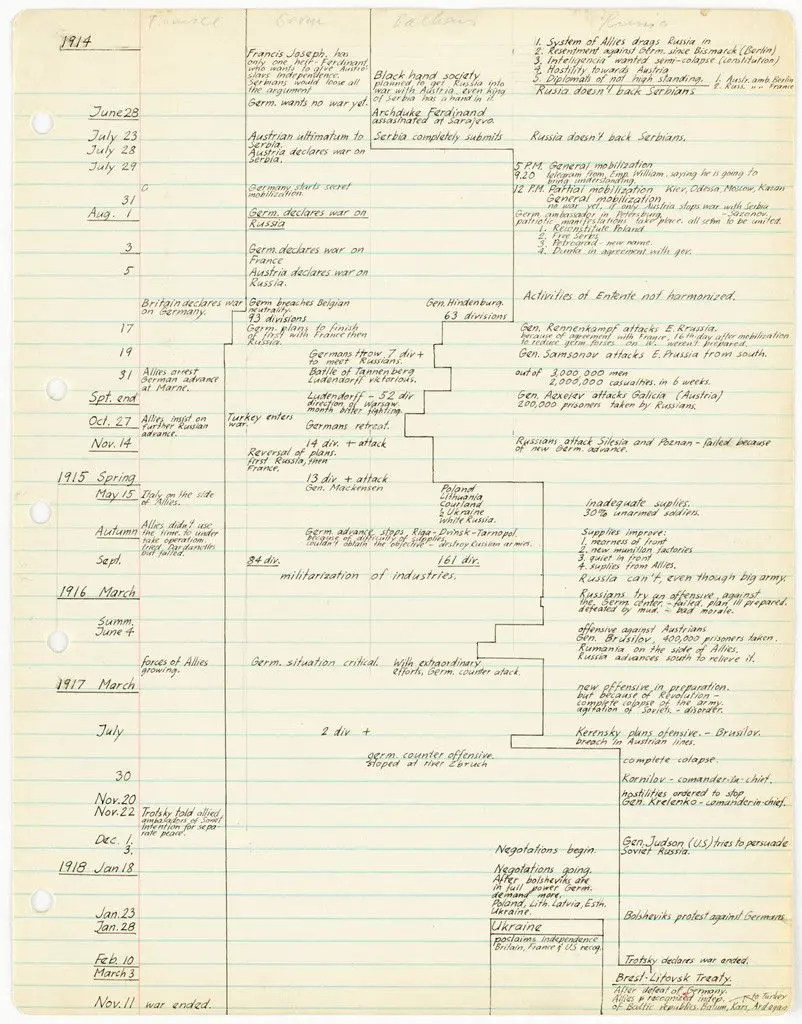 France Germ Balkans Russia
1914
1. System of Allies drags Russia in
2. Resentment against Germ. since Bismarck (Berlin)
3. Inteligencia wanted semi-colapse (constitution)
4. Hostility towards Austria
5. Diplomats of not high standing. 1. Austr. amb. Berlin
2. Russ. " " France
Francis Joseph. has
only one heir - Ferdinand,
who wants to give Austro-
slavs independence.
Serbians would loose all
the argument
Black hand society
planned to get Russia into
war with Austria, even king
of Serbia has a hand in it.
Germ. wants no war yet.
Rusia doesn't back Serbians
June 28
Archduke Ferdinand
assasinated at Sarajevo.
July 23
Austrian ultimatum to
Serbia.
Serbia completely submits
Russia doesn't back Serbians.
July 28
Austria declares war on
Serbia.
July 29
5 P.M. General mobilization
9.20 telegram from Emp. William, saying he is going to
bring understanding.
12 P.M. Partial mobilization Kiev, Odessa, Moscow, Kazan
31
Germany starts secret
mobilization.
General mobilization
no war yet, if only Austria stops war with Serbia
Aug. 1
Germ. declares war on
Russia
Germ. ambassador in Petersburg - Sazonov.
patriotic manifestations take place. all seem to be united.
1. Reconstitute Poland
2. Free Serbs
3. Petrograd - new name.
4. Dumka in agreement with gov.
3
Germ. declares war on
France
5
Austria declares war on
Russia.
Britain declares war
on Germany.
Germ breaches Belgian
neutrality.
93 divisions.
Gen. Hindenburg.
63 divisions
Activities of Entente not harmonized.
17
Germ. plans to finish
of first with France then
Russia.
Gen. Rennenkampf attacks E. Rrussia.
because of agreement with France, 16th day after mobilization
to reduce germ. forses on W. weren't prepared.
19
Germans throw 7 div +
to meet Russians.
Gen. Samsonov attacks E. Prussia from south.
31
Allies arrest
German advance
at Marne.
Batlle of Tannenberg
Ludendorff victorious.
out of 3,000,000 men
2,000,000 casualties. in 6 weeks.
Spt. end
Ludendorff - 52 div
direction of Warsaw.
month bitter fighting.
Gen. Aexeiev attacks Galicia (Austria)
200,000 prisoners taken by Russians.
Oct. 27
Allies insist on
further Russian
advance.
Turkey enters
war.
Germans retreat.
Nov. 14
14 div. + attack
Russians attack Silesia and Poznan - failed, because
of new Germ. advance.
Reversal of plans.
first Russia, then
France.
1915 Spring
13 div + attack
Gen. Mackensen
May 15
Italy on the side
of Allies.
Poland
Lithuania
Courland
½ Ukraine
White Russia.
inadequate suplies.
30% unarmed soldiers.
Autumn
Allies didn't use
the time, to under
take operation.
tried Dardanelles
but failed.
Germ advance stops, Riga - Dvinsk - Tarnopol.
because of difficulty of supplies.
couldn't obtain the objective - destroy Russian armies.
Supplies improve:
1. nearness of front
2. new munition factories
3. quiet in front
4. suplies from Allies.
Sept.
84 div.
161 div.
militarization of industries.
Russia can't, even though big army.
1916 March
Russians try an offensive, against
the Germ center. - failed, plan ill prepared.
defeated by mud. - bad morale.
Summ.
June 4
offensive against Austrians
Gen. Brusilov, 400,000 prisoners taken.
Rumania on the side of Allies.
Russia advances south to relieve it.
forces of Allies
growing.
Germ. situation critical.
With extraordinary
efforts, Germ. counter atack.
1917 March
new offensive in preparation.
but because of Revolution -
complete colapse of the army.
agitation of Soviets. - disorder.
July
2 div +
Kerensky plans ofensive. - Brusilov.
breach in Austrian lines.
germ. counter offensive.
stoped at river Zbruch
complete colapse.
30
Kornilov - comander-in-chief.
Nov. 20
hostilities ordered to stop
Gen. Krelenko - comanderin-chief.
Nov. 22
Trotsky told allied,
ambasadors of Soviet
intention for sepa-
rate peace.
Dec. 1.
3.
Negotations begin.
Gen. Judson (U.S) tries to persuade
Soviet Russia.
1918 Jan 18
Negotations going.
After bolsheviks are
in full power Germ.
demand more.
Poland, Lith. Latvia, Esth.
Ukraine.
Jan. 23
Bolsheviks protest against Germans
Jan. 28
Ukraine
poclaims independence
Britain, France & US recog.
Feb. 10
Trotsky declares war ended.
March 3
Brest-Litovsk Treaty.
After defeat of Germany.
Allies recognized indep.
of Baltic republics. Batum, Kars, Ardagan
to Turkey
Nov. 11 war ended.